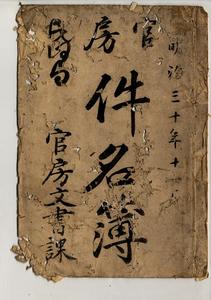 明治三十年十
官房
件名簿
官房文書課